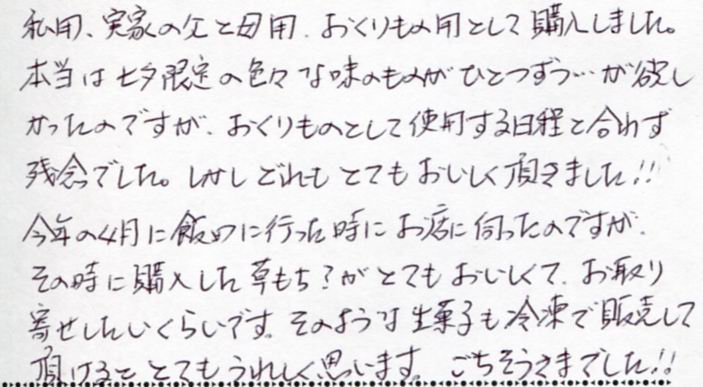 私用、実家の父と母用、おくりもの用として購入しました。
本当は七夕限定の色々な味のものがひとつずつ…が欲し
かったのですが、おくりものとして使用する日程と合わず
残念でした。しかしどれもとてもおいしく頂きました!!
今年の4月に飯田に行った時にお店に伺ったのですが、
その時に購入した草もち?がとてもおいしくて、お取り
寄せしたいくらいです。そのような生菓子も冷凍で販売して
頂けるととてもうれしく思います。ごちそうさまでした!!